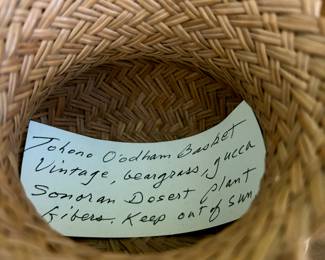 Tohono O'odham Basket
Vintage, beargrass, yucca
Sonoran Desert plant
fibers. Keep out of sun